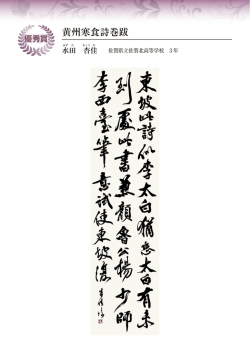 優秀賞
黄州寒食詩巻跋
水田 杏佳
佐賀県立佐賀北高等学校 3年
東坡此詩似李太白猶恐太白有未
到處此書兼顔魯公楊少師
李西臺筆意試使東坡復